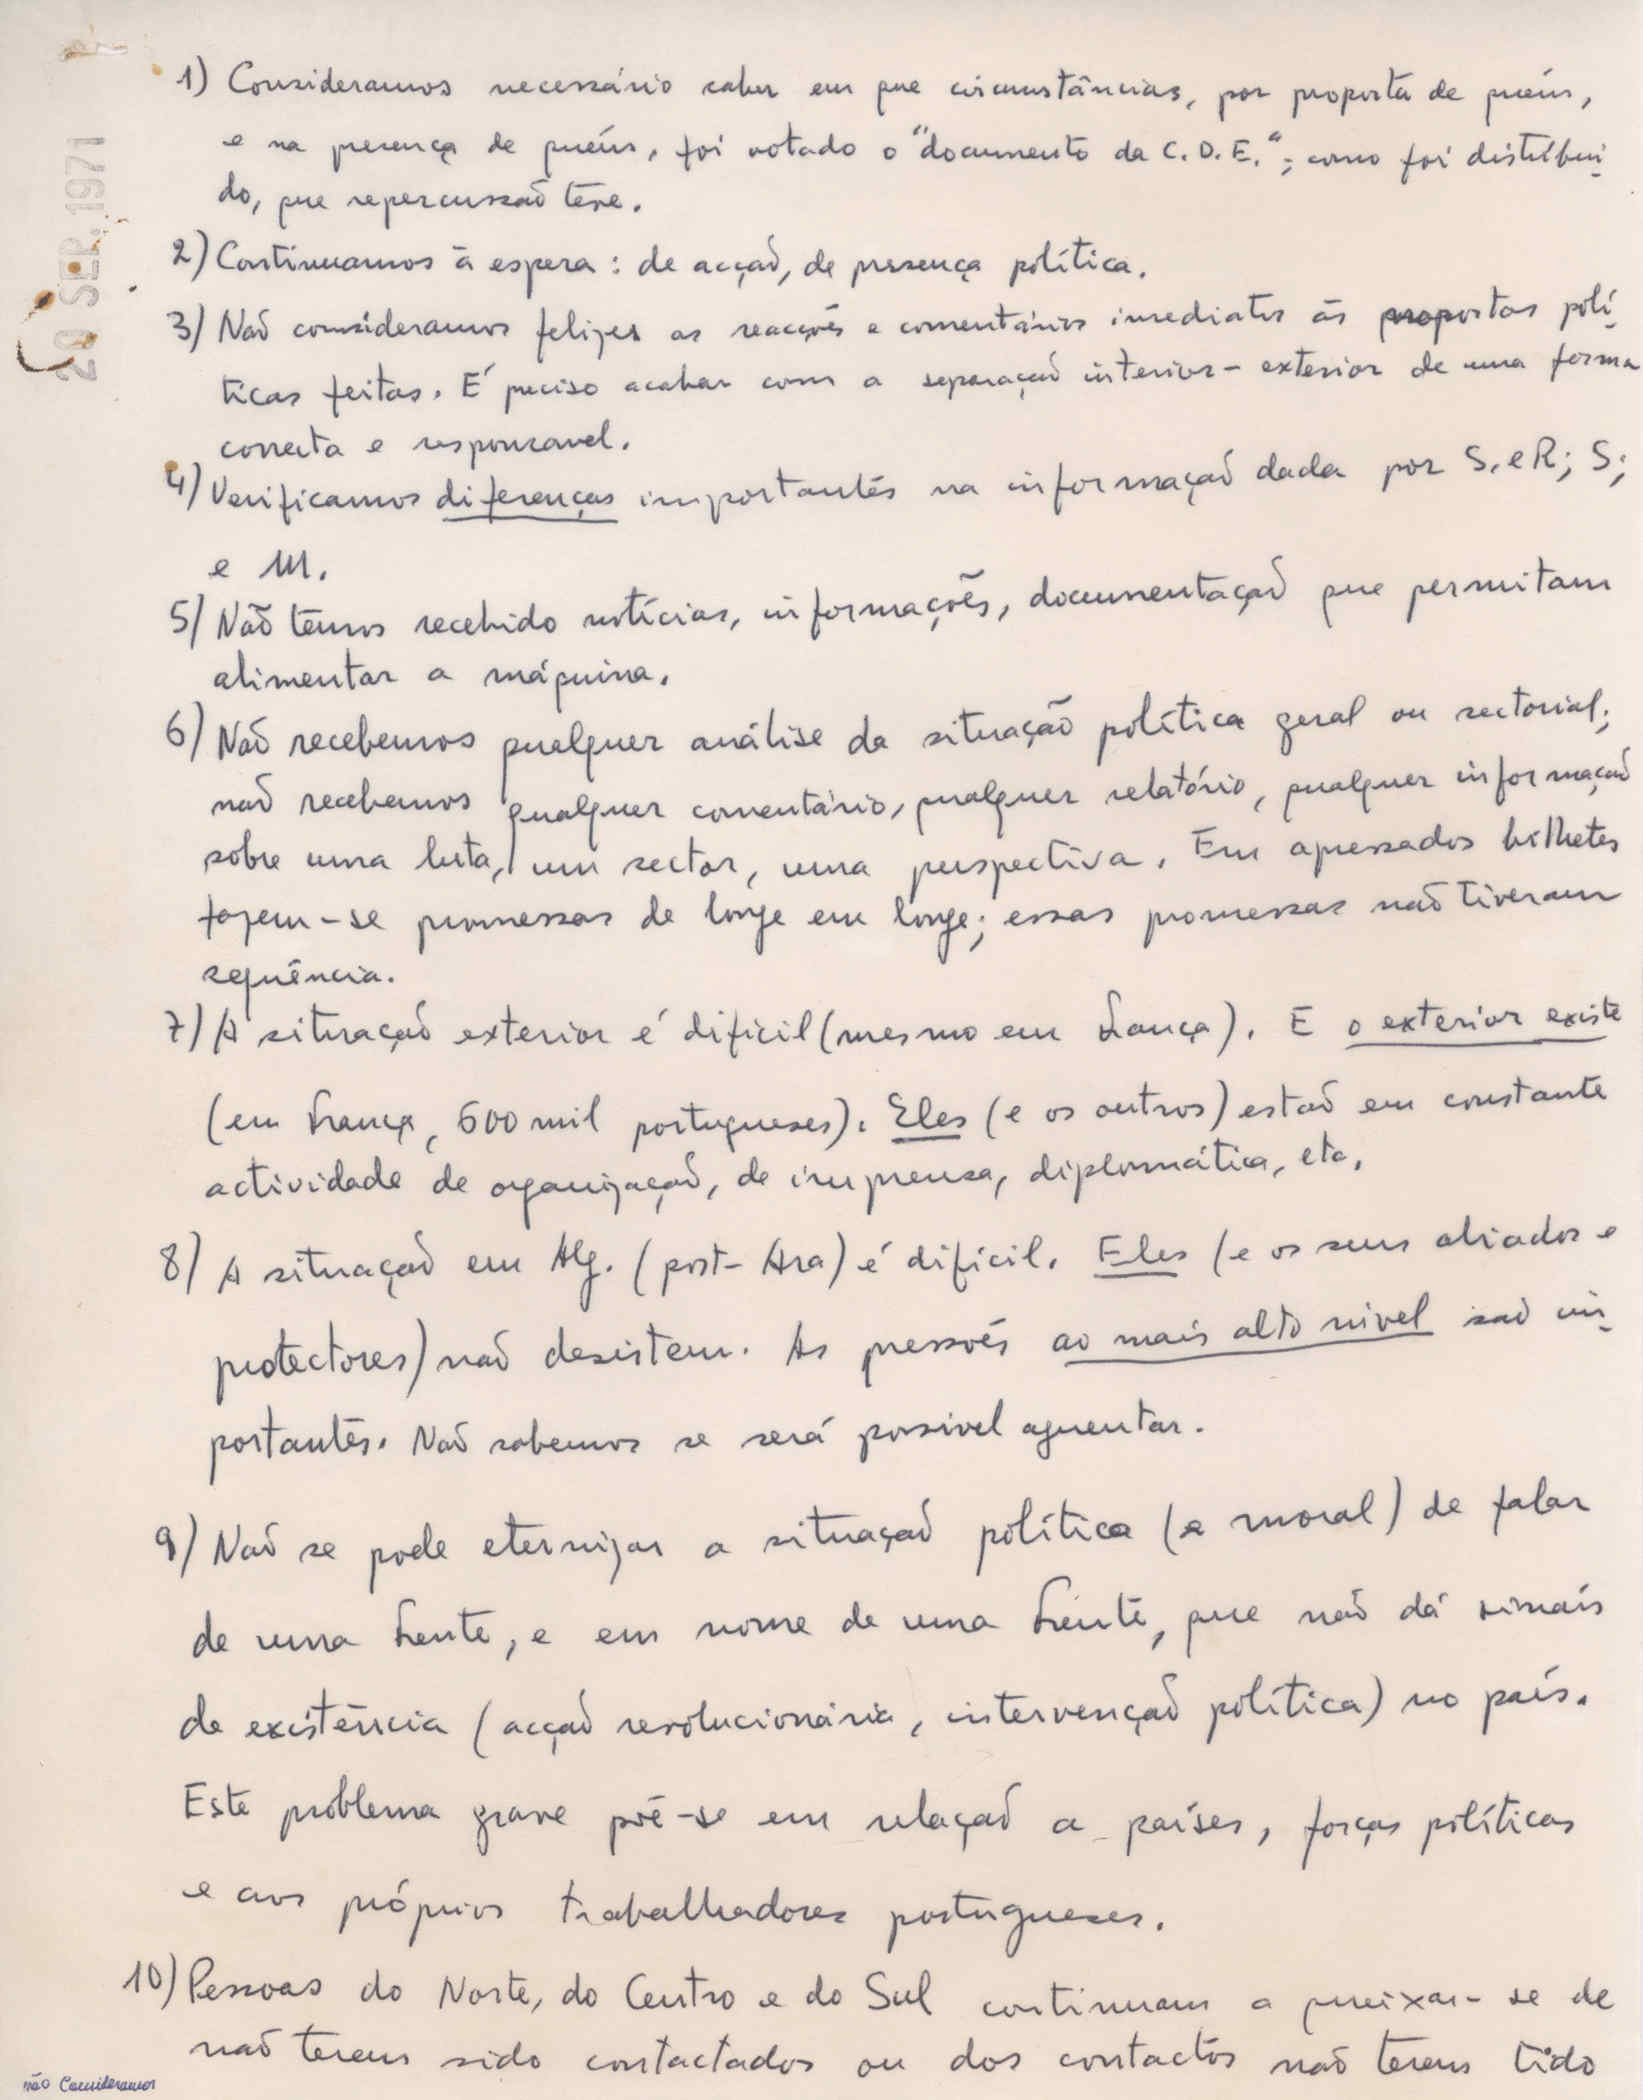 20 SEP. 1971
1) Consideramos necessário saber em que circunstâncias, por proposta de quém,
e na presença de quém, foi votado o "documento da C.D.E."; como foi distribui-
do, que repercussão teve.
2) Continuamos à espera: de acção, de presença política.
3) Não consideramos felizes as reacções e comentários imediatos às propostas polí-
ticas feitas. É preciso acabar com a separação interior-exterior de uma forma
correcta e responsavel.
4) Verificamos diferenças importantes na informação dada por S. e R; S;
e M.
5) Não temos recebido notícias, informações, documentação que permitam
alimentar a máquina.
6) Não recebemos qualquer análise da situação política geral ou sectorial;
não recebemos qualquer comentário, qualquer relatório, qualquer informação
sobre uma luta, um sector, uma perspectiva. Em apressados bilhetes
fazem-se promessas de longe em longe; essas promessas não tiveram
sequência.
7) A situação exterior é dificil (mesmo em França). E o exterior existe
(em França, 600 mil portugueses). Eles (e os outros) estão em constante
actividade de organização, de imprensa, diplomática, etc.
8) A situação em Alg. (post-Ara) é difícil. Eles (e os seus aliados e
protectores) não desistem. As pressões ao mais alto nivel são im-
portantes. Não sabemos se será possivel aguentar.
9) Não se pode eternizar a situação política (e moral) de falar
de uma Frente, e em nome de uma Frente, que não dá sinais
de existência (acção revolucionária, intervenção política) no país.
Este problema grave põe-se em relação a países, forças políticas
e aos próprios trabalhadores portugueses.
10) Pessoas do Norte, do Centro e do Sul continuam a queixar-se de
não terem sido contactados ou dos contactos não terem tido
não Consideramos